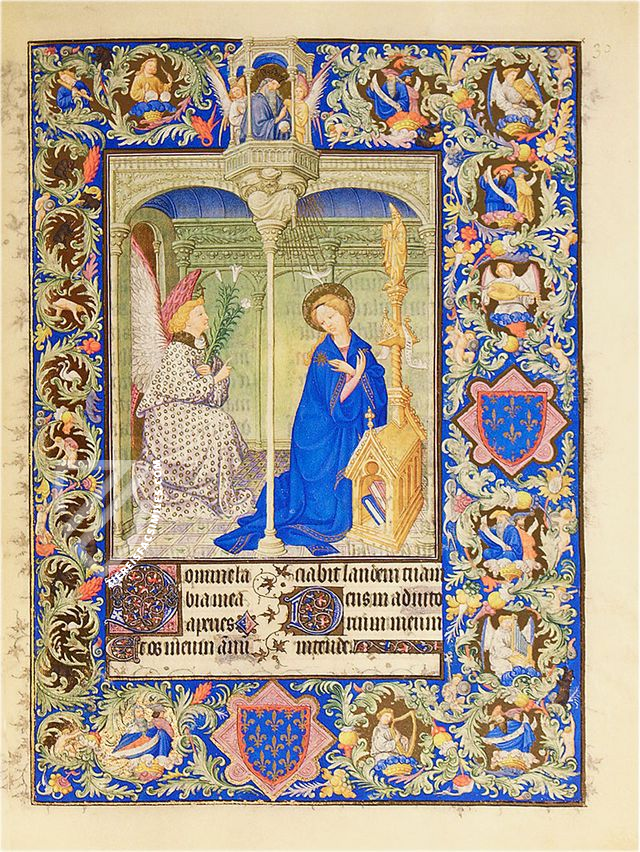 30
Domine la
bia mea
aperies
Et os meum annū
ciabit laudem tuam
Deus in adiuto
rium meum
intende